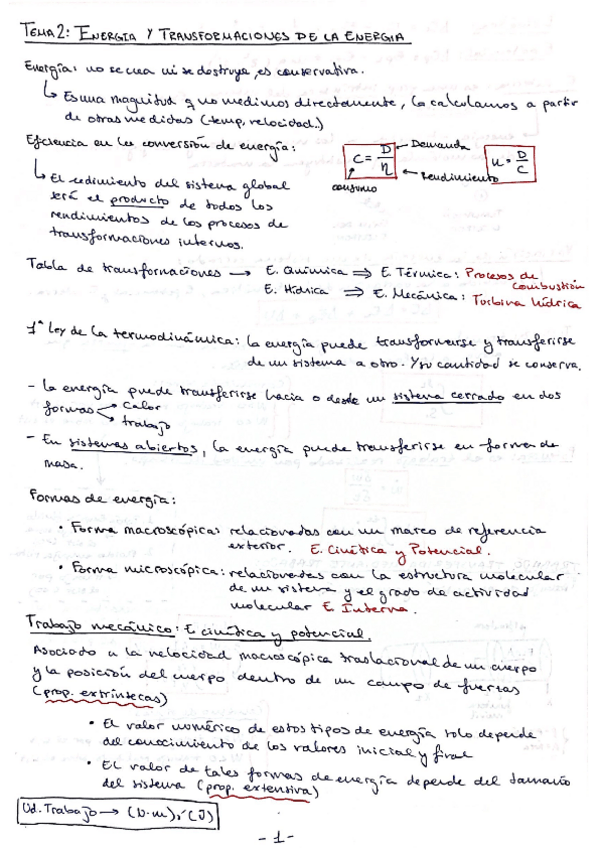 TEMA 2: ENERGIA Y TRANSFORMACIONES DE LA ENERGIA
Energía: no se crea ni se destruye, es conservativa.
↳ Es una magnitud q no medimos directamente, la calculamos a partir
de otras medidas (temp, velocidad..)
Eficiencia en la conversión de energía:
C = D/η ← Demanda
← Rendimiento
consumo
η = D/C
↳ El redimiento del sistema global
será el producto de todos los
rendimientos de los procesos de
transformaciones internos.
Tabla de transformaciones → E. Química ⇒ E. Térmica: Procesos de
Combustión
E. Hídrica ⇒ E. Mecánica: Turbina hídrica
1ª ley de la termodinámica: la energía puede transformarse y transferirse
de un sistema a otro. Y su cantidad se conserva.
- La energía puede transferirse hacia o desde un sistema cerrado en dos
formas → calor
→ trabajo
- En sistemas abiertos, la energía puede transferirse en forma de
masa.
Formas de energía:
• Forma macroscópica: relacionadas con un marco de referencia
exterior. E. Cinética y Potencial.
• Forma microscópica: relacionadas con la estructura molecular
de un sistema y el grado de actividad
molecular E. Interna.
Trabajo mecánico: E cinética y potencial.
Asociado a la velocidad macroscópica traslacional de un cuerpo
y la posición del cuerpo dentro de un campo de fuerzas
(prop. extrínsecas)
• El valor numérico de estos tipos de energía solo depende
del conocimiento de los valores inicial y final
• El valor de tales formas de energía depende del tamaño
del sistema (prop. extensiva)
Ud. Trabajo → (N·m), (J)
- 1 -